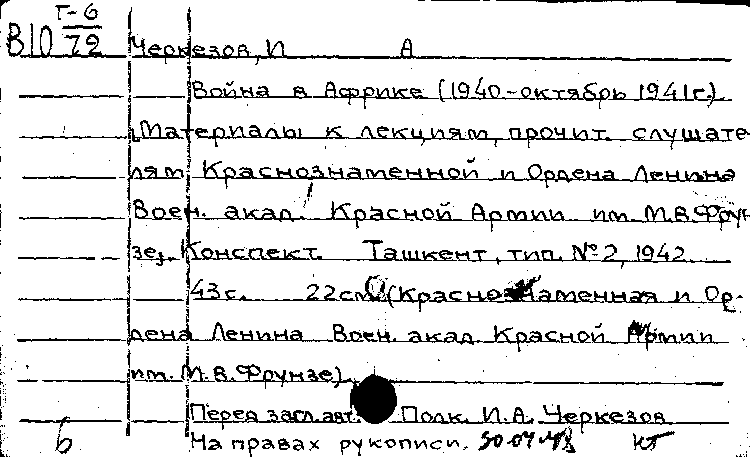 В10 Г-6/72
Черкезов, И А
Война в Африке (1940-октябрь 1941г.).
Материалы к лекциям, прочит. слушате-
лям Краснознаменной и Ордена Ленина
Воен. акад. Красной Армии им. М.В.Фрун-
зе. Конспект. Ташкент, тип. №2, 1942
43с. 22см (Краснознаменная и Ор-
дена Ленина Воен. акад. Красной Армии
им. М.В.Фрунзе)
Перед загл. авт. Полк. И.А. Черкезов
На правах рукописи.
6